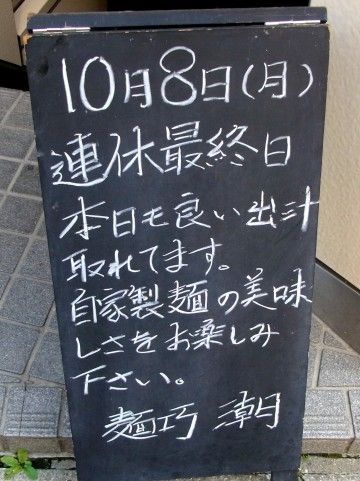 10月8日(月)
連休最終日
本日も良い出汁
取れてます。
自家製麺の美味
しさをお楽しみ
下さい。
麺巧 潮